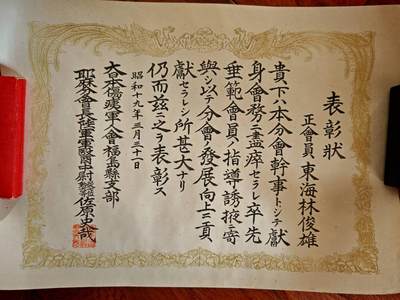 表彰状
正會員 東海林俊雄
貴下ハ本分會幹事トシテ獻
身會務ニ盡瘁セラレ卒先
垂範會員ノ指導誘掖ニ寄
與シ以テ分會ノ發展向上ニ貢
獻セラレシ所甚大ナリ
仍而玆ニ之ヲ表彰ス
昭和十九年三月三十一日
大日本傷痍軍人會福島縣支部
耶麻分會長陸軍軍醫中尉 佐原史哉